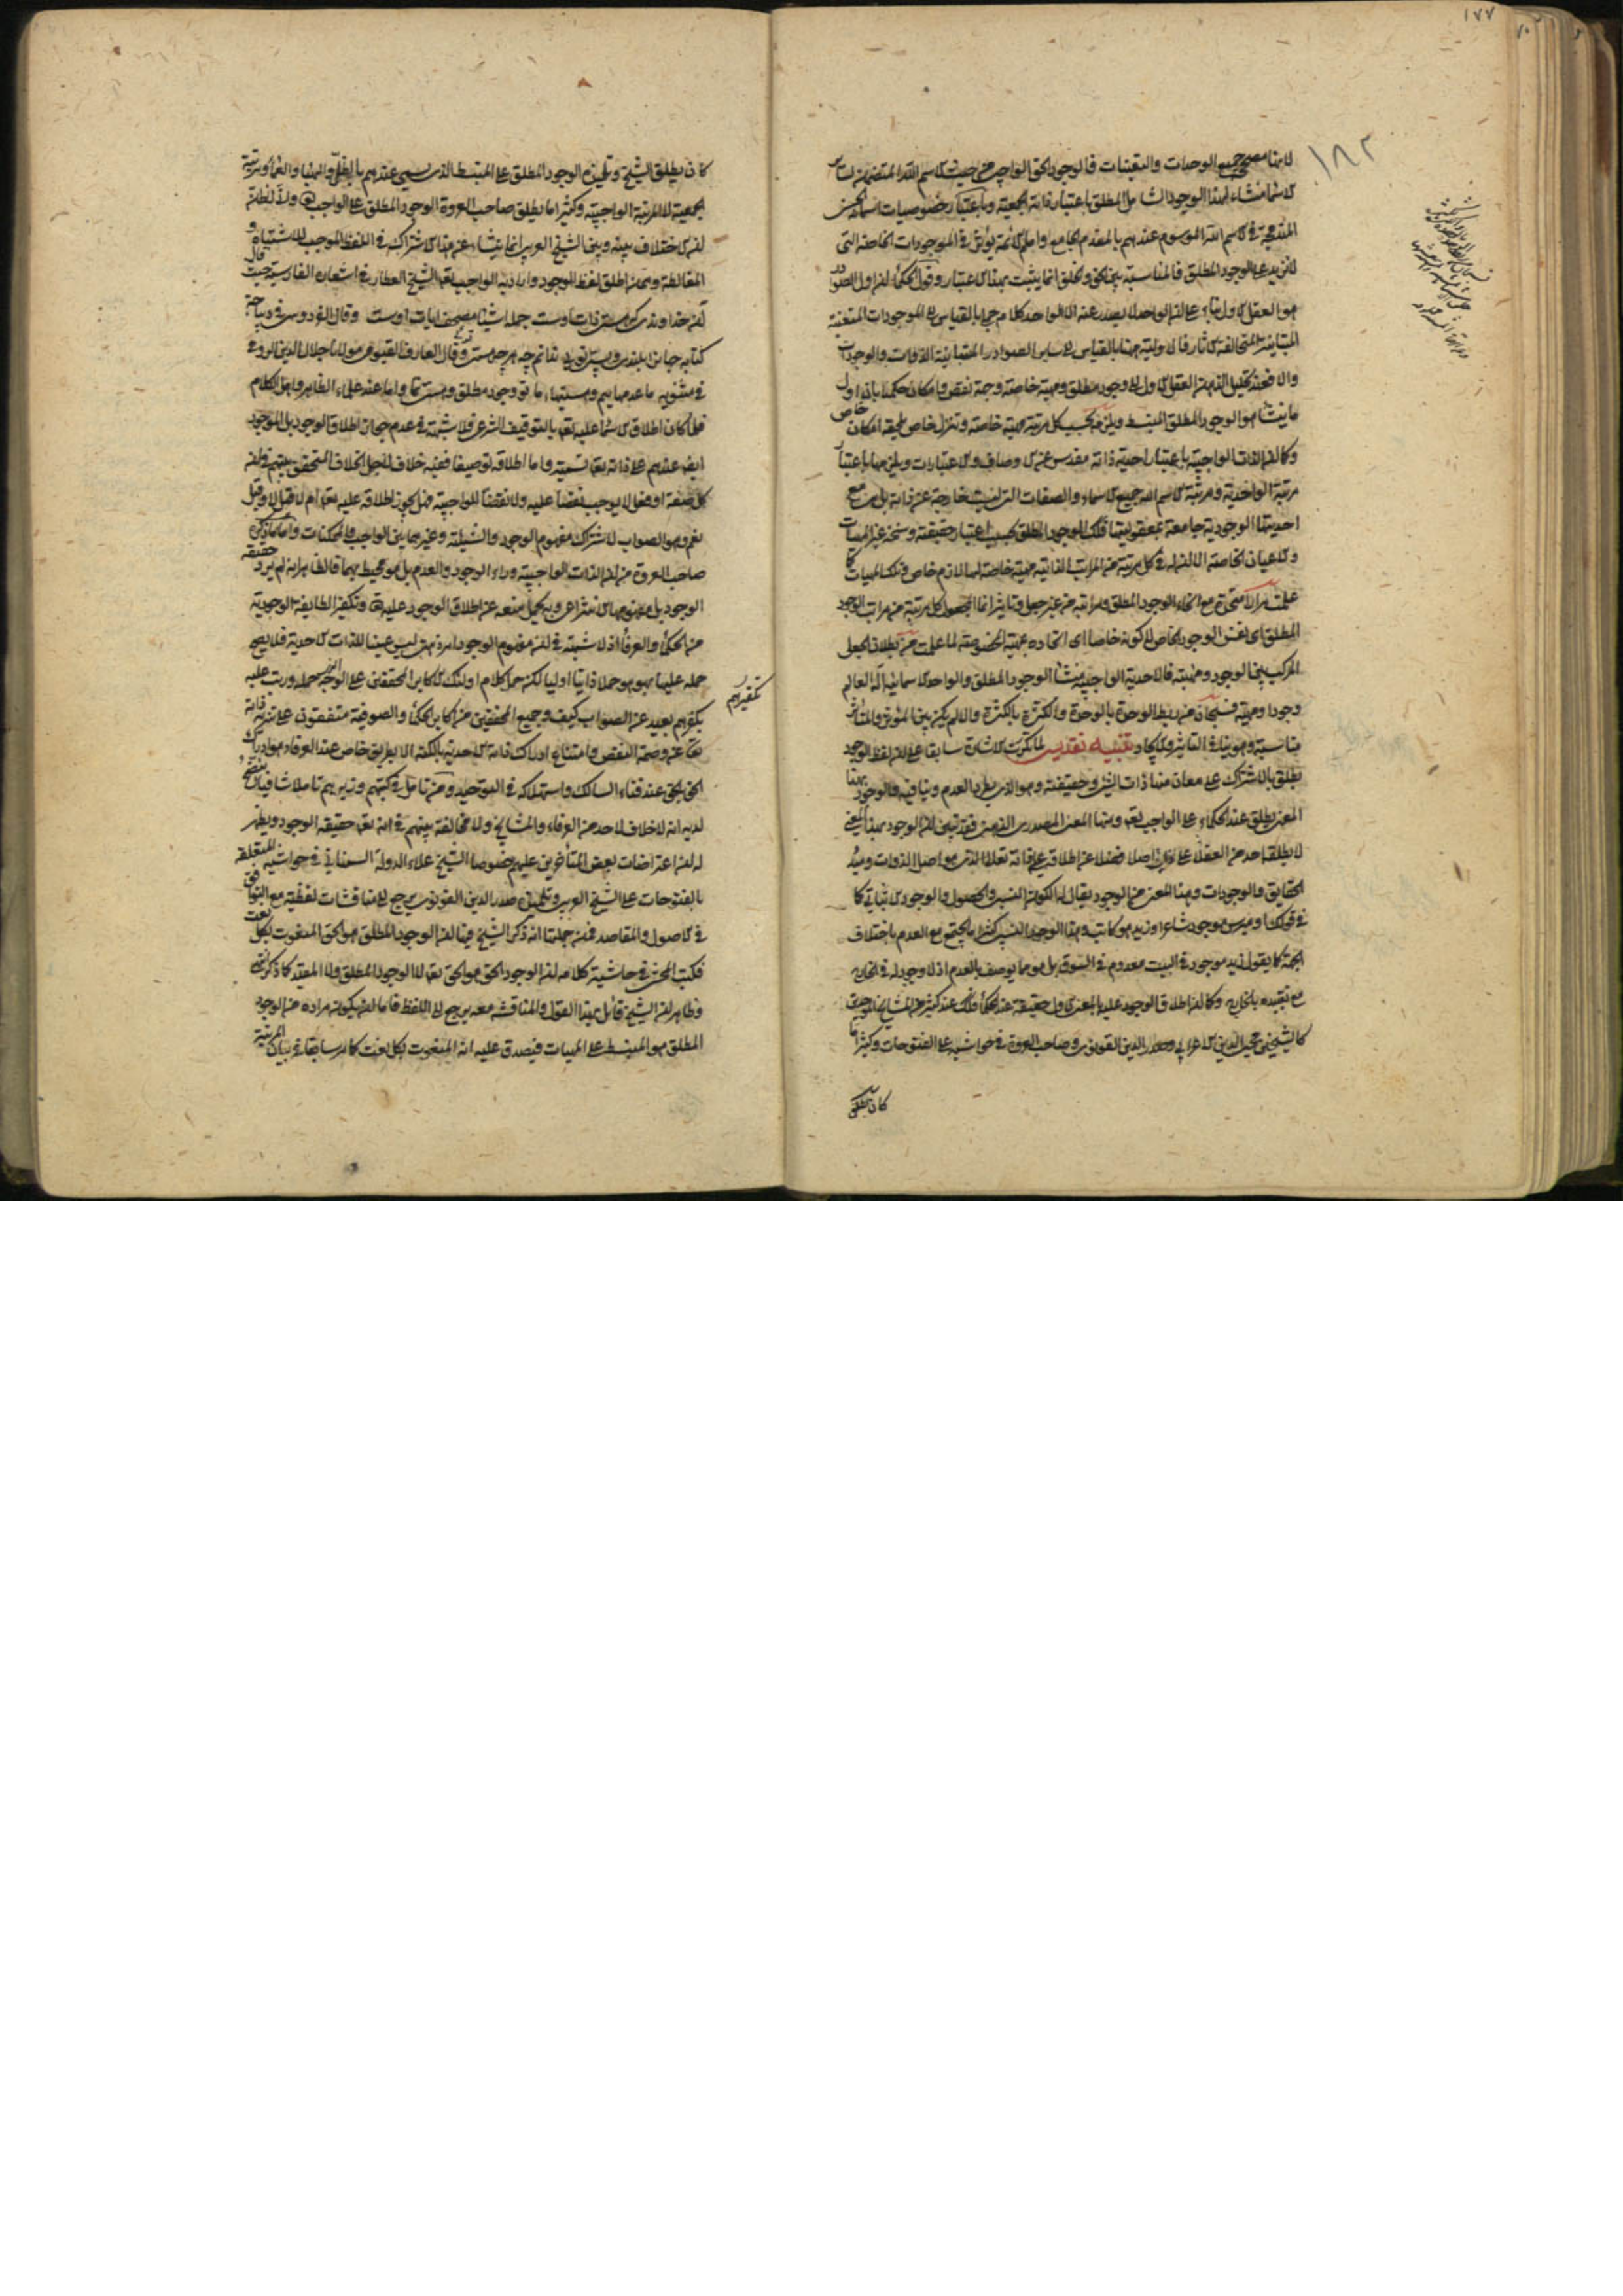 ١٧٧
١٨٢
لانها مصحح جميع الوحدات والتعينات فالوجود الحق الواجب من حيث الاسم الله المتضمن لسائر
الاسماء منشاء لهذا الوجود الشامل المطلق باعتبار ذاته الجمعية وباعتبار خصوصيات اسمائه الحسنى
المندمجة في الاسم الله الموسوم عندهم بالمقدم الجامع وامام الائمة يؤثر في الموجودات الخاصة التي
لا تزيد على الوجود المطلق فالمناسبة بين الحق والخلق انما يثبت بهذا الاعتبار وقول الحكماء ان اول الصوادر
هو العقل الاول بناء على ان الواحد لا يصدر عنه الا الواحد كلام جملي بالقياس الى الموجودات المتعينة
المتباينة المتخالفة الآثار فالاولية ههنا بالقياس الى سائر الصوادر المتباينة الذوات والوجودات
والا فعند تحليل الذهن العقل الاول الى وجود مطلق ومهية خاصة وجهة نقص وامكان حكمنا بان اول
ما ينشأ هو الوجود المطلق المنبسط ويلزمه بحسب كل مرتبة مهية خاصة وتنزل خاص يلحقه امكان خاص
وكما ان الذات الواجبية باعتبار احدية ذاته مقدس عن الاوصاف والاعتبارات ويلزمها باعتبار
مرتبة الواحدية ومرتبة الاسم الله جميع الاسماء والصفات التي ليست خارجة عن ذاته بل هي مع
احديتها الوجودية جامعة لمعقوليتها فكذلك الوجود المطلق بحسب اعتبار حقيقته وسنخه غير المهيات
والاعيان الخاصة الا ان له في كل مرتبة من المراتب الذاتية مهية خاصة لها لازم خاص وتلك المهيات كما
علمت مرارا متحدة مع انحاء الوجود المطلق ومراتبه من غير جعل وتاثير انما المجعول كل مرتبة من مراتب الوجود
المطلق اى نفس الوجود الخاص لا كونه خاصا اى اتحاده بمهيته المخصوصة لما علمت من بطلان الجعل
المركب بين الوجود ومهيته فالاحدية الواجبية منشأ الوجود المطلق والواحدية الاسمائية اله العالم
وجودا ومهية فسبحان من ربط الوحدة بالوحدة والكثرة بالكثرة والا لم يكن بين المؤثر والمتأثر
مناسبة وهو ينافي التاثير والايجاد تنبيه تقديسى لما تكررت الاشارة سابقا على ان لفظ الوجود
يطلق بالاشتراك على معان منها ذات الشئ وحقيقته وهو الذى يطرد العدم وينافيه والوجود بهذا
المعنى يطلق عند الحكماء على الواجب تعه ومنها المعنى المصدرى الذهنى فقد تبين ان الوجود بهذا المعنى
لا يطلقه احد من العقلاء على ذات اصلا فضلا عن اطلاقه على ذاته تعالى الذى هو اصل الذوات ومبدأ
الحقايق والوجودات وهذا المعنى من الوجود يقال له الكون النسبى والحصول والوجود الاثباتى كما
في قولك اوميرس موجود شاعرا وزيد هو كاتب وهذا الوجود النسبى كثيرا ما يجتمع مع العدم باختلاف
الجهة كما يقول زيد موجود في البيت معدوم في السوق بل هو مما يوصف بالعدم اذ لا وجود له في الخارج
مع تقيده بالخارج وكما ان اطلاق الوجود عليه بالمعنى الاول حقيقة عند الحكماء فكذلك عند كثير من المشايخ الموحدين
كالشيخين محيى الدين الاعرابى وصدر الدين القونوى وصاحب العروة في حواشيه على الفتوحات وكثيرا ما
كان يطلق
كان يطلق الشيخ وتلميذه الوجود المطلق على المنبسط الذى يسمى عندهم بالظل والهباء والعماء ومرتبة
الجمعية لا المرتبة الواجبية وكثيرا ما يطلق صاحب العروة الوجود المطلق على الواجب تعه ولاظن
ان الاختلاف بينه وبين الشيخ العربى انما ينشاء عن هذا الاشتراك في اللفظ الموجب للاشتباه و
المغالطة وممن اطلق لفظ الوجود واراد به الواجب تعه الشيخ العطار في اشعاره الفارسية حيث قال
آن خداوندى كه هستى ذات اوست جمله اشيا مصحف آيات اوست وقال الفردوسى في ديباجة
كتابه جهان را بلندى وپستى توئى ندانم چه هرچه هستى توئى وقال العارف القيومى مولانا جلال الدين الرومى
في مثنويه ما عدمهاييم وهستيها ما تو وجود مطلق وهستى ما واما عند علماء الظاهر واهل الكلام
فلما كان اطلاق الاسماء عليه تعه بالتوقيف الشرعى فلا شبهة في عدم جواز اطلاق الوجود بل الموجود
ايضا عندهم على ذاته تعه تسمية واما اطلاقه توصيفا ففيه خلاف لاجل الخلاف المتحقق بينهم في ان
كل صفة او فعل لا يوجب نقضا عليه ولا نقضا للواجبية هل يجوز اطلاقه عليه تعه ام لا فقيل لا وقيل
نعم وهو الصواب لاشتراك مفهوم الوجود والشيئية وغيرهما بين الواجب والممكنات واما ما ذكره
صاحب العروة من ان الذات الواجبية وراء الوجود والعدم بل هو محيط بهما فالظاهر انه لم يرد حقيقة
الوجود بل مفهومها الانتزاعى وبه يحمل منعه عن اطلاق الوجود عليه تعه وتكفير الطايفة الوجودية
من الحكماء والعرفاء اذ لا شبهة في ان مفهوم الوجود امر ذهنى ليس عينا للذات الاحدية فلا يصح
حمله عليها بهو هو حملا ذاتيا اوليا لكن حمل كلام اولئك الاكابر المحققين على الوجه الذى حمله ورتب عليه
تكفيرهم
تكفيرهم بعيد عن الصواب كيف وجميع المحققين من اكابر الحكماء والصوفية متفقون على تنزيه ذاته
تعه عن وصمة النقص وامتناع ادراك ذاته الاحدية بالكنه الا بطريق خاص عند العرفاء هو ادراك
الحق بالحق عند فناء السالك واستهلاكه في التوحيد ومن تامل في كتبهم وزبرهم تاملا شافيا يتضح
لديه انه لا خلاف لاحد من العرفاء والمشايخ ولا مخالفة بينهم في انه تعه حقيقة الوجود ويظهر
له ان اعتراضات بعض المتأخرين عليهم خصوصا الشيخ علاء الدولة السمنانى في حواشيه المتعلقة
بالفتوحات على الشيخ العربى وتلميذه صدر الدين القونوى يرجع الى مناقشات لفظية مع التوافق
في الاصول والمقاصد فمن جملتها انه ذكر الشيخ فيها ان الوجود المطلق هو الحق المنعوت بكل نعت
فكتب المحشى في حاشية كلامه ان الوجود الحق هو الحق تعه لا الوجود المطلق ولا المقيد كما ذكره
وظاهر ان الشيخ قائل بهذا القول والمناقشة معه يرجع الى اللفظ فاما ان يكون مراده من الوجود
المطلق هو المنبسط على المهيات فيصدق عليه انه المنعوت بكل نعت كما مر سابقا في بيان المرتبة